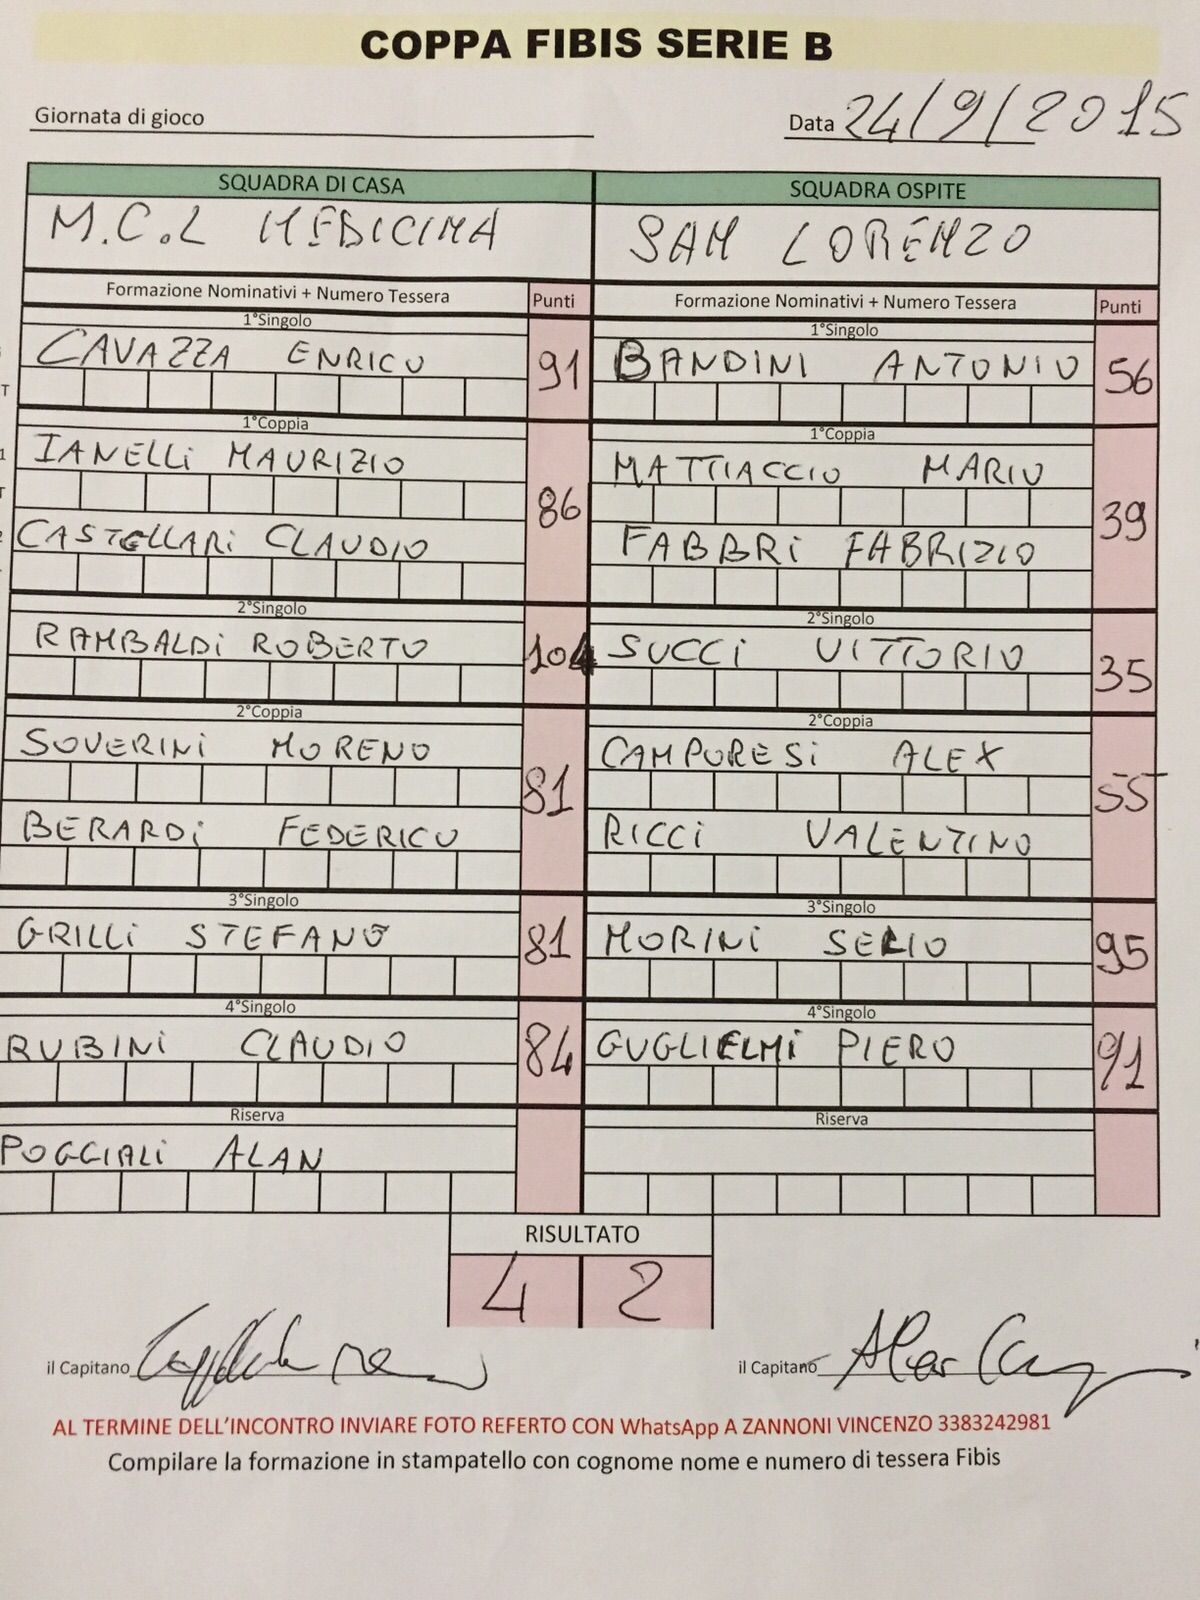 COPPA FIBIS SERIE B
Giornata di gioco
Data 24/9/2015
SQUADRA DI CASA SQUADRA OSPITE
M.C.L MEDICINA SAN LORENZO
Formazione Nominativi + Numero Tessera Punti Formazione Nominativi + Numero Tessera Punti
1°Singolo 1°Singolo
CAVAZZA ENRICO 91 BANDINI ANTONIO 56
1°Coppia 1°Coppia
IANELLi MAURIZIO MATTIACCIO MARIO
86 39
CASTELLARi CLAUDIO FABBRi FABRIZIO
2°Singolo 2°Singolo
RAMBALDi ROBERTO 104 SUCCi VITTORIO 35
2°Coppia 2°Coppia
SOVERINi MORENO CAMPORESi ALEX
81 55
BERARDi FEDERICO RICCi VALENTINO
3°Singolo 3°Singolo
GRILLi STEFANO 81 MORINi SELIO 95
4°Singolo 4°Singolo
RUBINi CLAUDIO 84 GUGLIELMi PIERO 91
Riserva Riserva
POGGIALi ALAN
RISULTATO
4 2
il Capitano il Capitano
AL TERMINE DELL'INCONTRO INVIARE FOTO REFERTO CON WhatsApp A ZANNONI VINCENZO 3383242981
Compilare la formazione in stampatello con cognome nome e numero di tessera Fibis